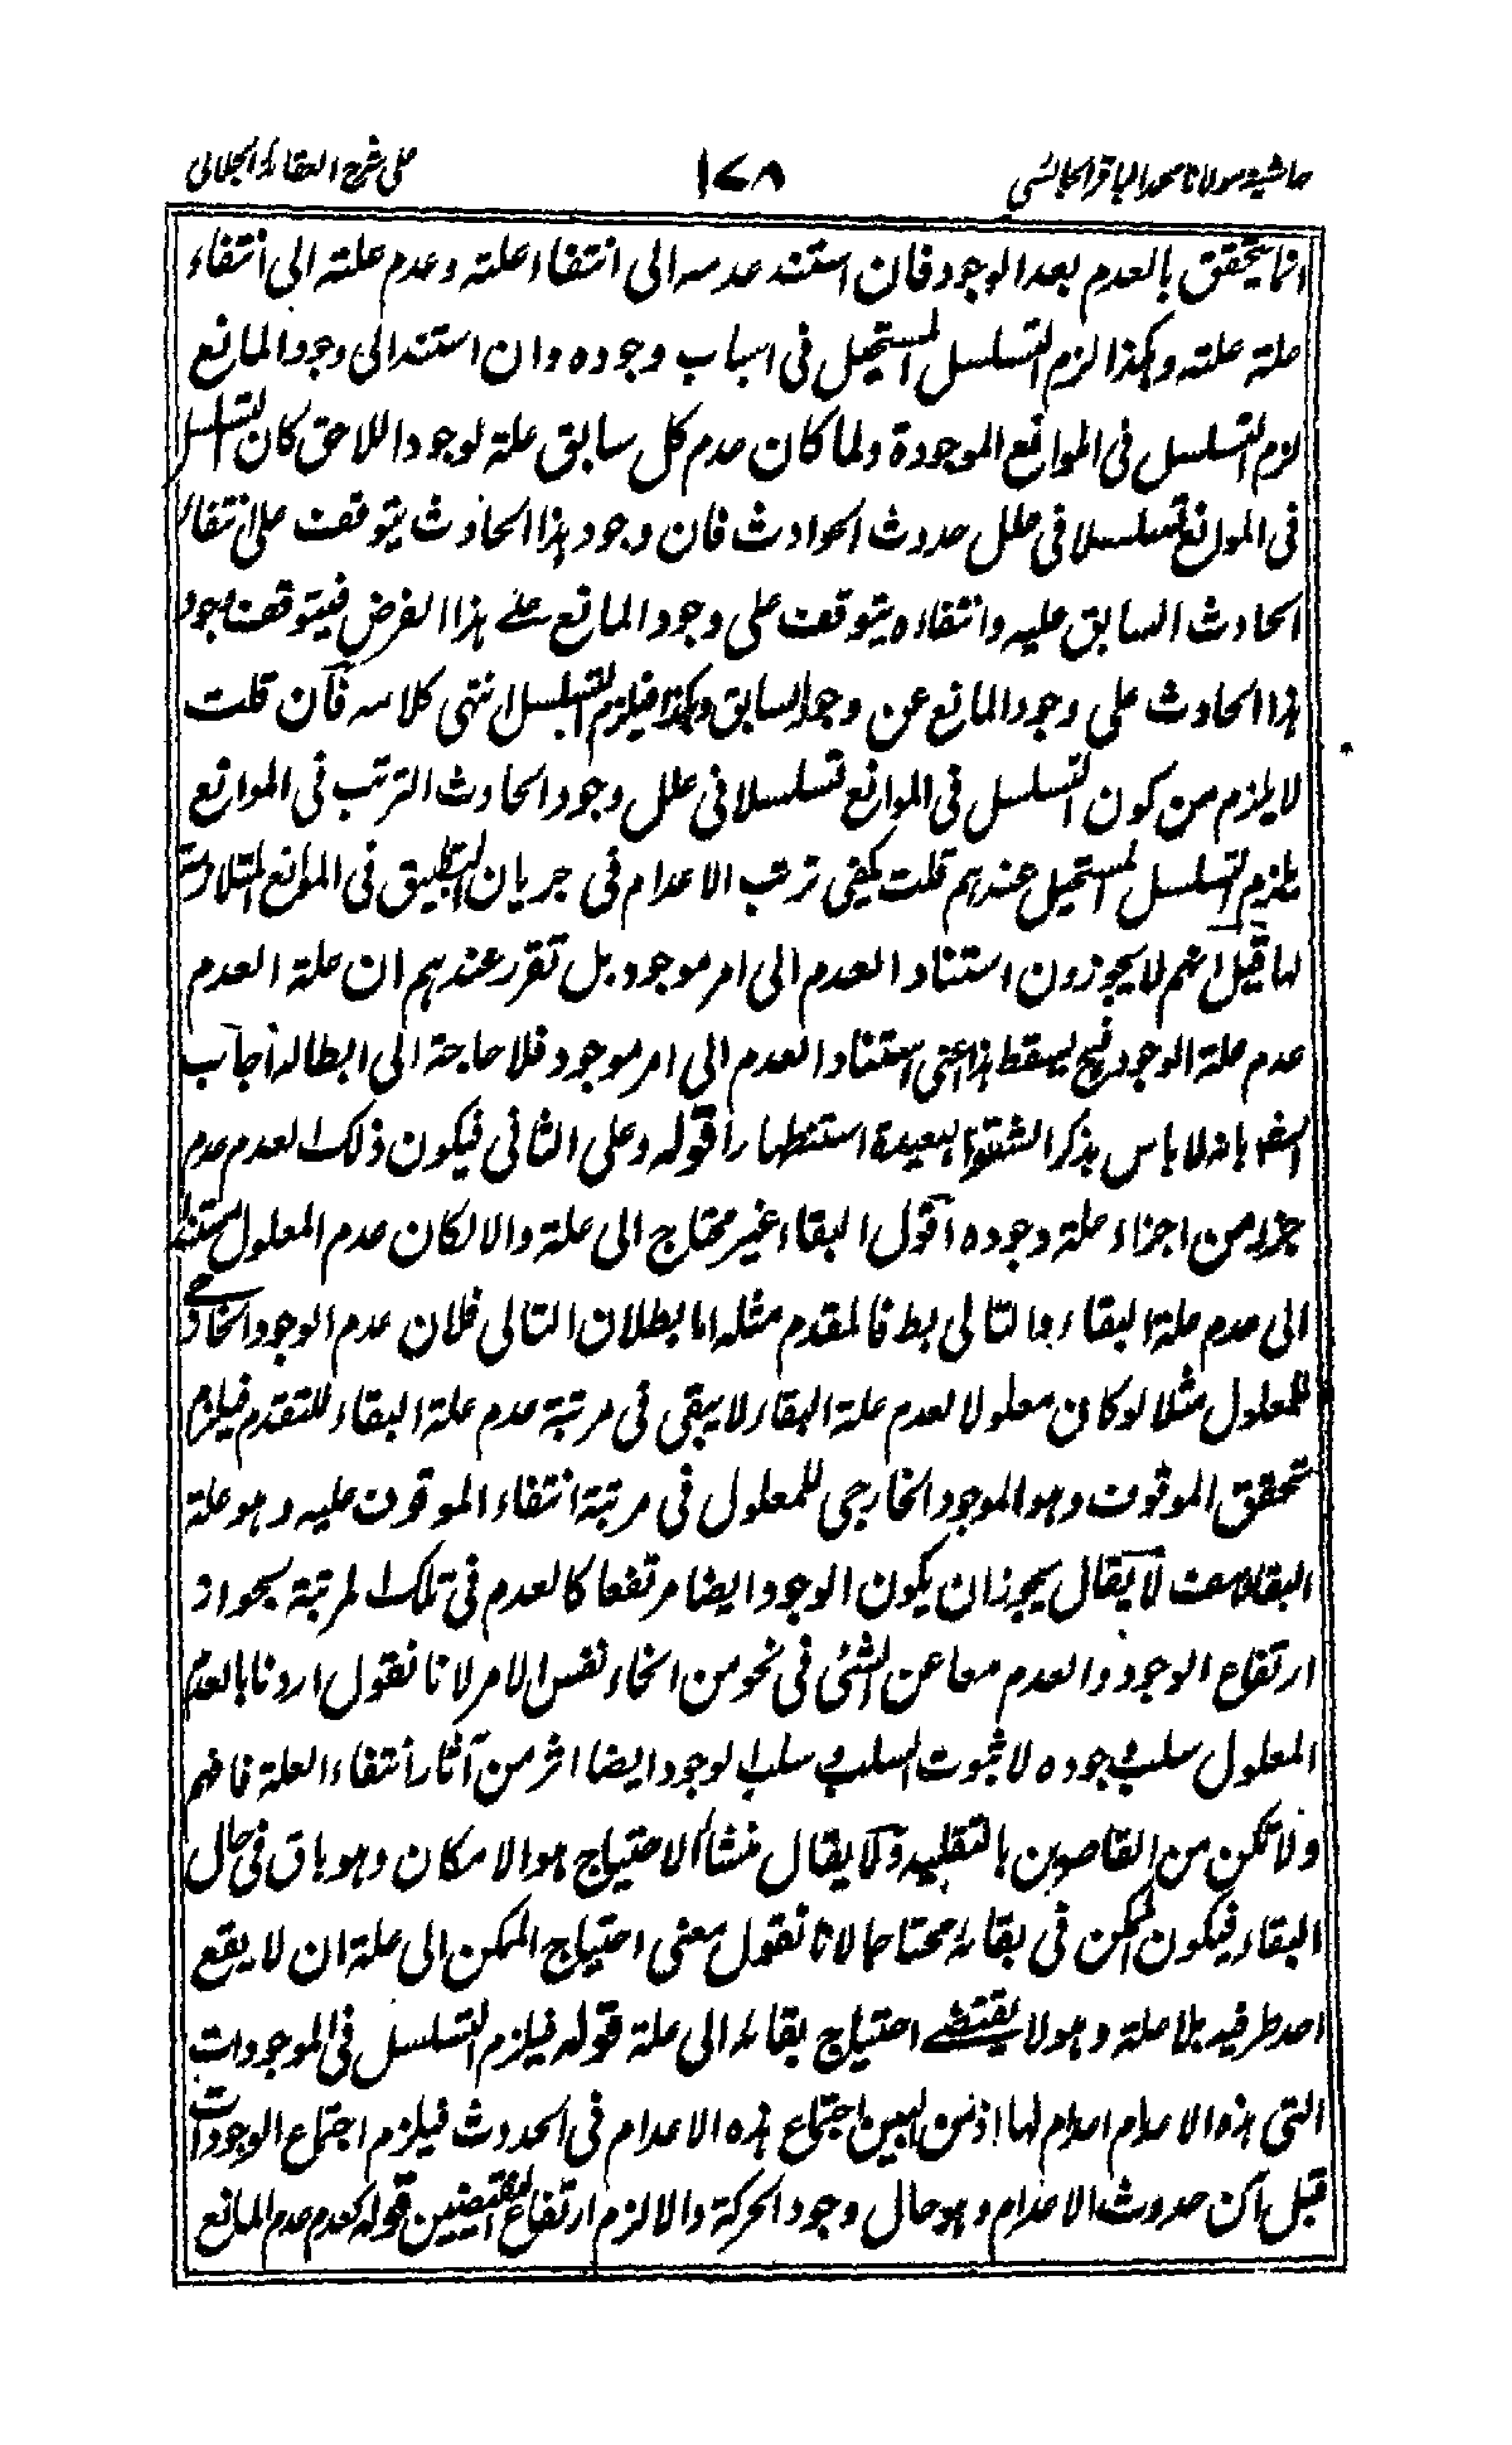 حاشية مولانا محمد الباقر الجالسى
١٧٨
على شرح العقائد الجلالى
انما يتحقق بالعدم بعد الوجود فان استند عدمه الى انتفاء علته وعدم علته الى انتفاء
علة علته وهكذا لزم التسلسل المستحيل فى اسباب وجوده وان استند الى وجود المانع
لزم التسلسل فى الموانع الموجودة ولما كان عدم كل سابق علة لوجود اللاحق كان التسلسل
فى الموانع تسلسلا فى علل حدوث الحوادث فان وجود هذا الحادث يتوقف على انتفاء
الحادث السابق عليه وانتفاءه يتوقف على وجود المانع على هذا الفرض فيتوقف وجود
هذا الحادث على وجود المانع عن وجود السابق وهكذا فيلزم التسلسل انتهى كلامه فان قلت
لا يلزم من كون التسلسل فى الموانع تسلسلا فى علل وجود الحادث الترتب فى الموانع
يلزم التسلسل المستحيل عندهم قلت يكفى ترتب الاعدام فى جريان التطبيق فى الموانع المتلازمة
لها قيل انهم لا يجوزون استناد العدم الى امر موجود بل تقرر عندهم ان علة العدم
عدم علة الوجود فح يسقط هذا اعنى استناد العدم الى امر موجود فلا حاجة الى ابطاله اجاب
بانه لا باس بذكر الشقوق البعيدة استظهارا قوله وعلى الثانى فيكون ذلك العدم عدم
جزء من اجزاء علة وجوده اقول البقاء غير محتاج الى علة والا لكان عدم المعلول مستندا
الى عدم علة البقاء والتالى بط فالمقدم مثله اما بطلان التالى فلان عدم الوجود الخارجى
للمعلول مثلا لو كان معلولا لعدم علة البقاء لا يبقى فى مرتبة عدم علة البقاء للتقدم فيلزم
تحقق الموقوف وهو الموجود الخارجى للمعلول فى مرتبة انتفاء الموقوف عليه وهو علة
البقاء هف لا يقال يجوز ان يكون الوجود ايضا مرتفعا كالعدم فى تلك المرتبة بجواز
ارتفاع الوجود والعدم معا عن الشئ فى نحو من انحاء نفس الامر لانا نقول اردنا بالعدم
المعلول سلب وجوده لا ثبوت السلب وسلب الوجود ايضا اثر من آثار انتفاء العلة فافهم
ولا تكن من القاصرين بالتقليد ولا يقال منشأ الاحتياج هو الامكان وهو باق فى حال
البقاء فيكون الممكن فى بقائه محتاجا لانا نقول معنى احتياج الممكن الى علة ان لا يقع
احد طرفيه بلا علة وهو لا يقتضى احتياج بقائه الى علة قوله فيلزم التسلسل فى الموجودات
التى هذه الاعدام اعدام لها اذ من البين اجتماع هذه الاعدام فى الحدوث فيلزم اجتماع الوجودات
قبل آن حدوث الاعدام وهو حال وجود الحركة والا لزم ارتفاع النقيضين قوله كعدم عدم المانع